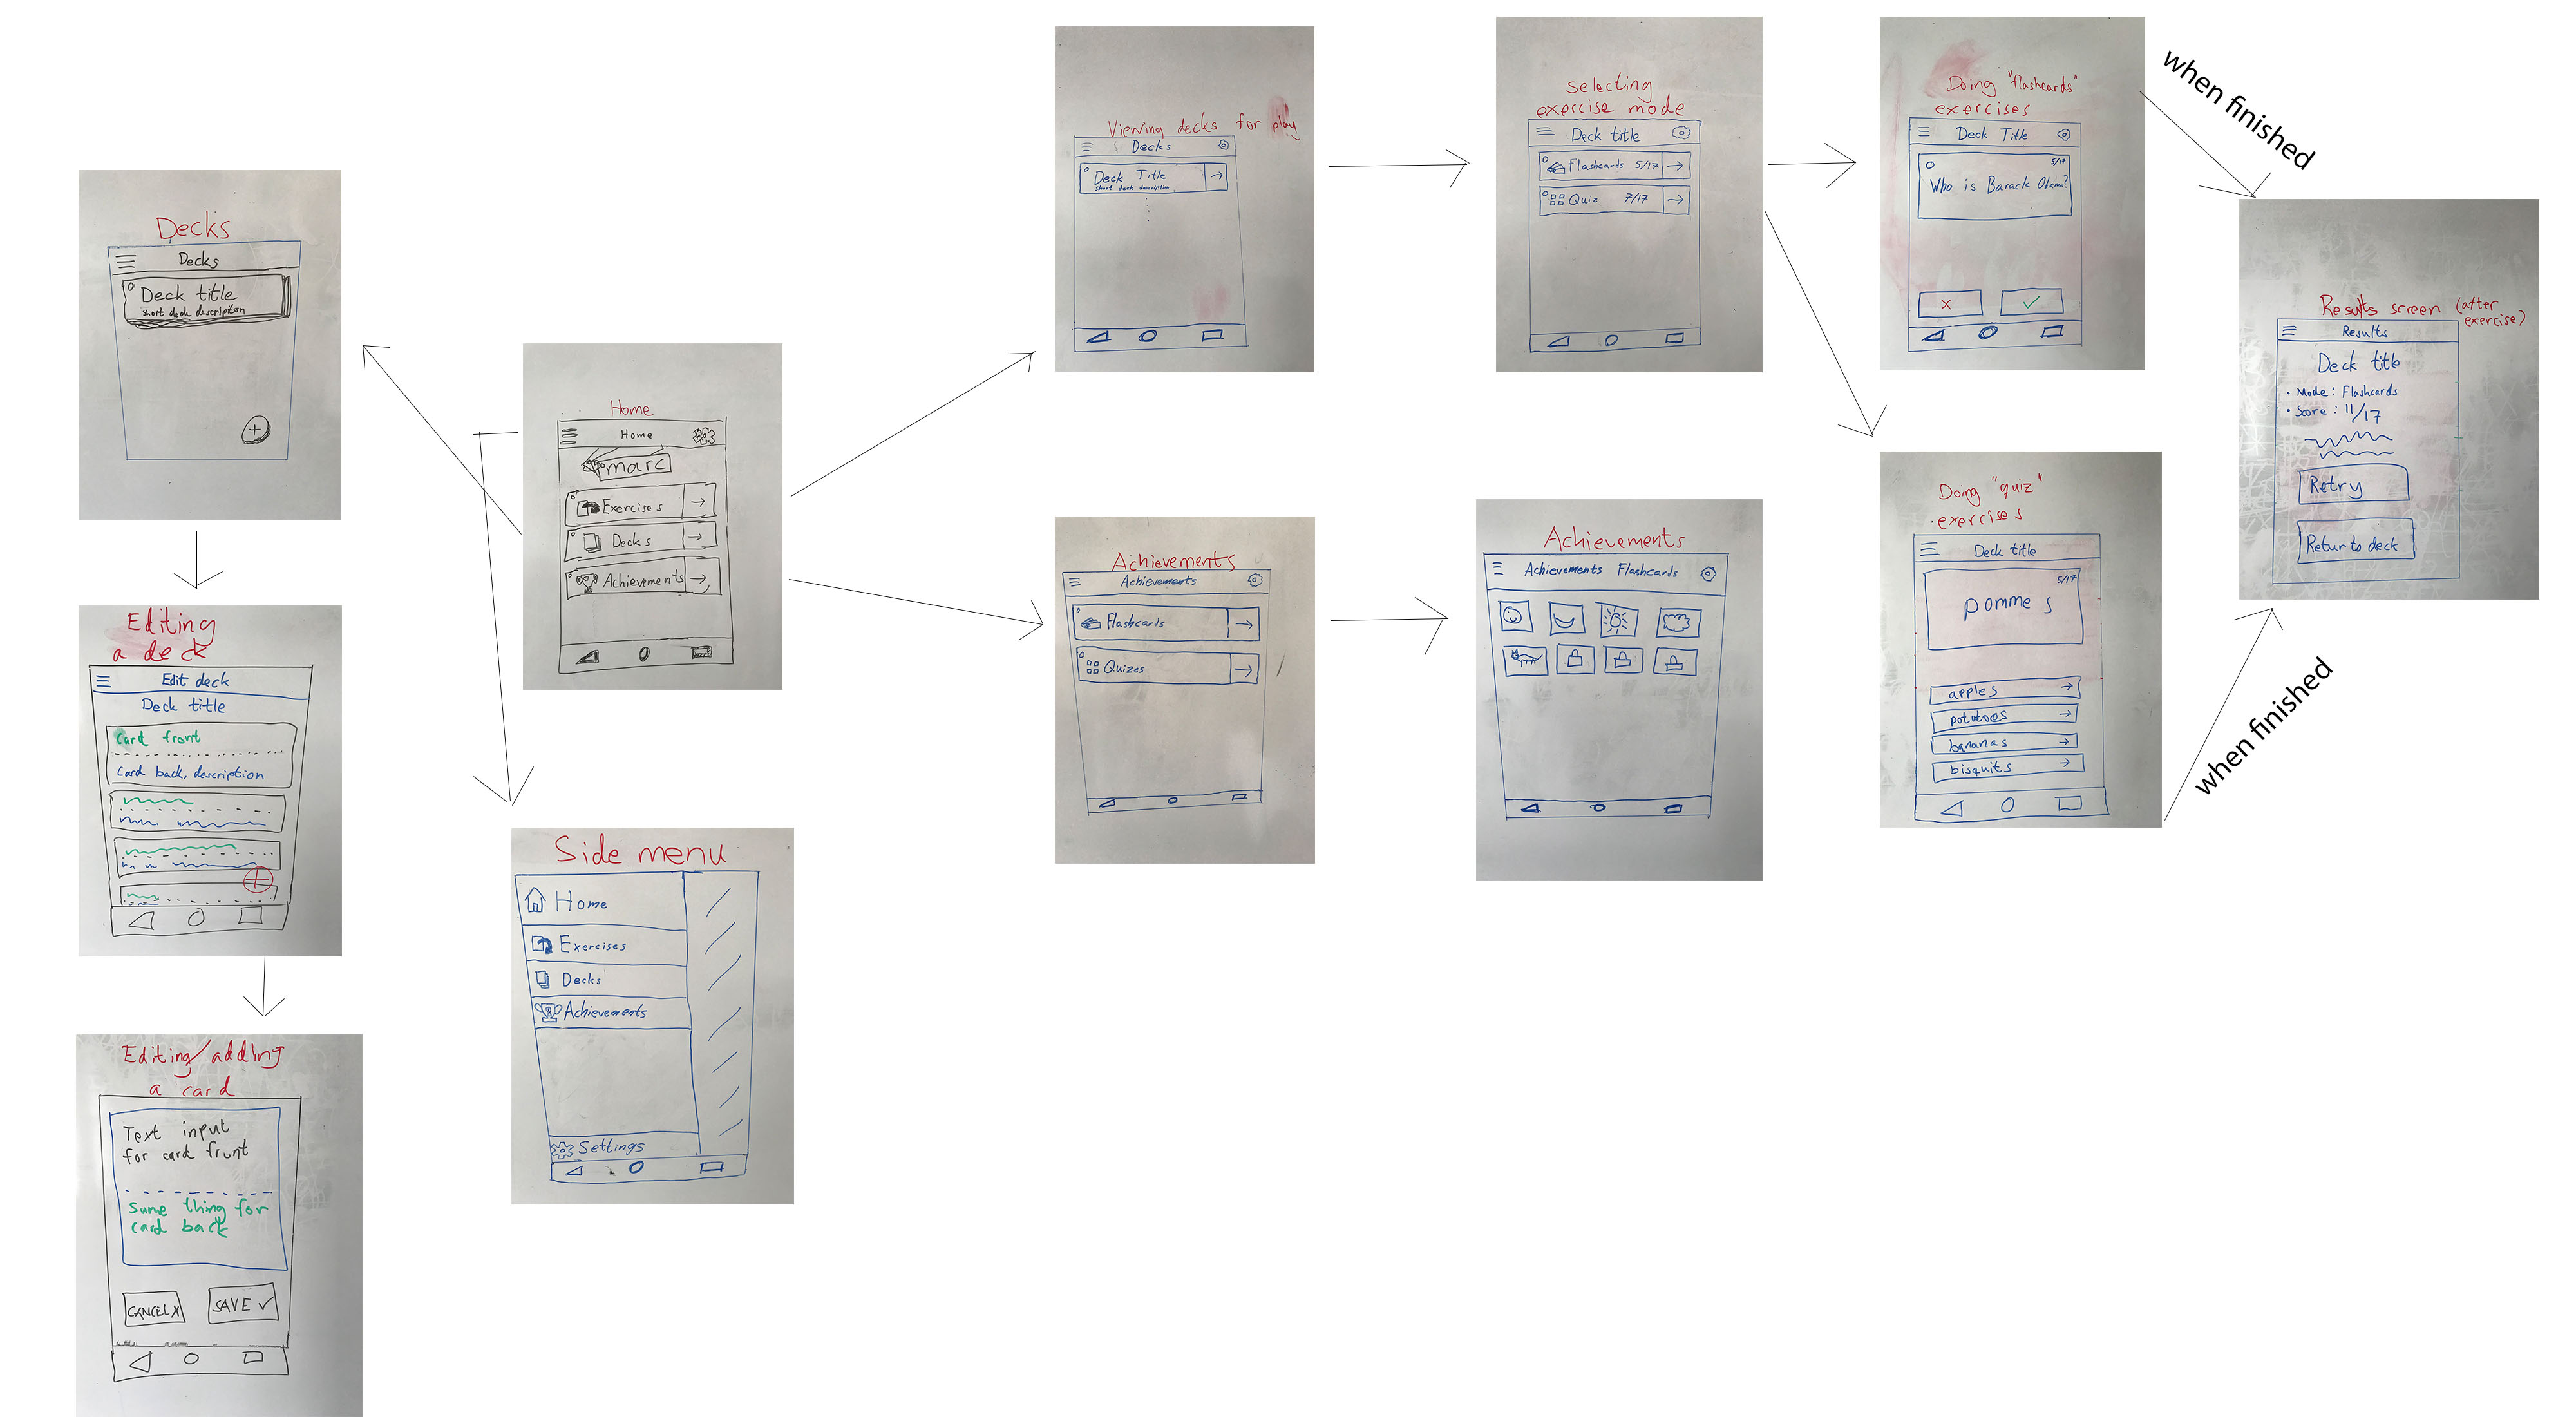 Decks
Decks
Deck title
short deck description
+
Editing
a deck
Edit deck
Deck title
Card front
Card back, description
Editing/adding
a card
Text input
for card frunt
Sume thing for
card back
CANCEL X
SAVE ✓
Home
Home
marc
Exercises
Decks
Achievements
Side menu
Home
Exercises
Decks
Achievements
Settings
Viewing decks for play
Decks
Deck Title
short deck description
Achievements
Achievements
Flashcards
Quizes
Selecting
exercise mode
Deck title
Flashcards 5/17
Quiz 7/17
Achievements
Achievements Flashcards
Doing "flashcards"
exercises
Deck Title
5/17
Who is Barack Obama?
X ✓
when finished
Doing "quiz"
exercises
Deck title
5/17
pommes
apples
potatoes
bananas
bisquits
when finished
Results screen (after
exercise)
Results
Deck title
• Mode: Flashcards
• Score: 11/17
Retry
Retur to deck